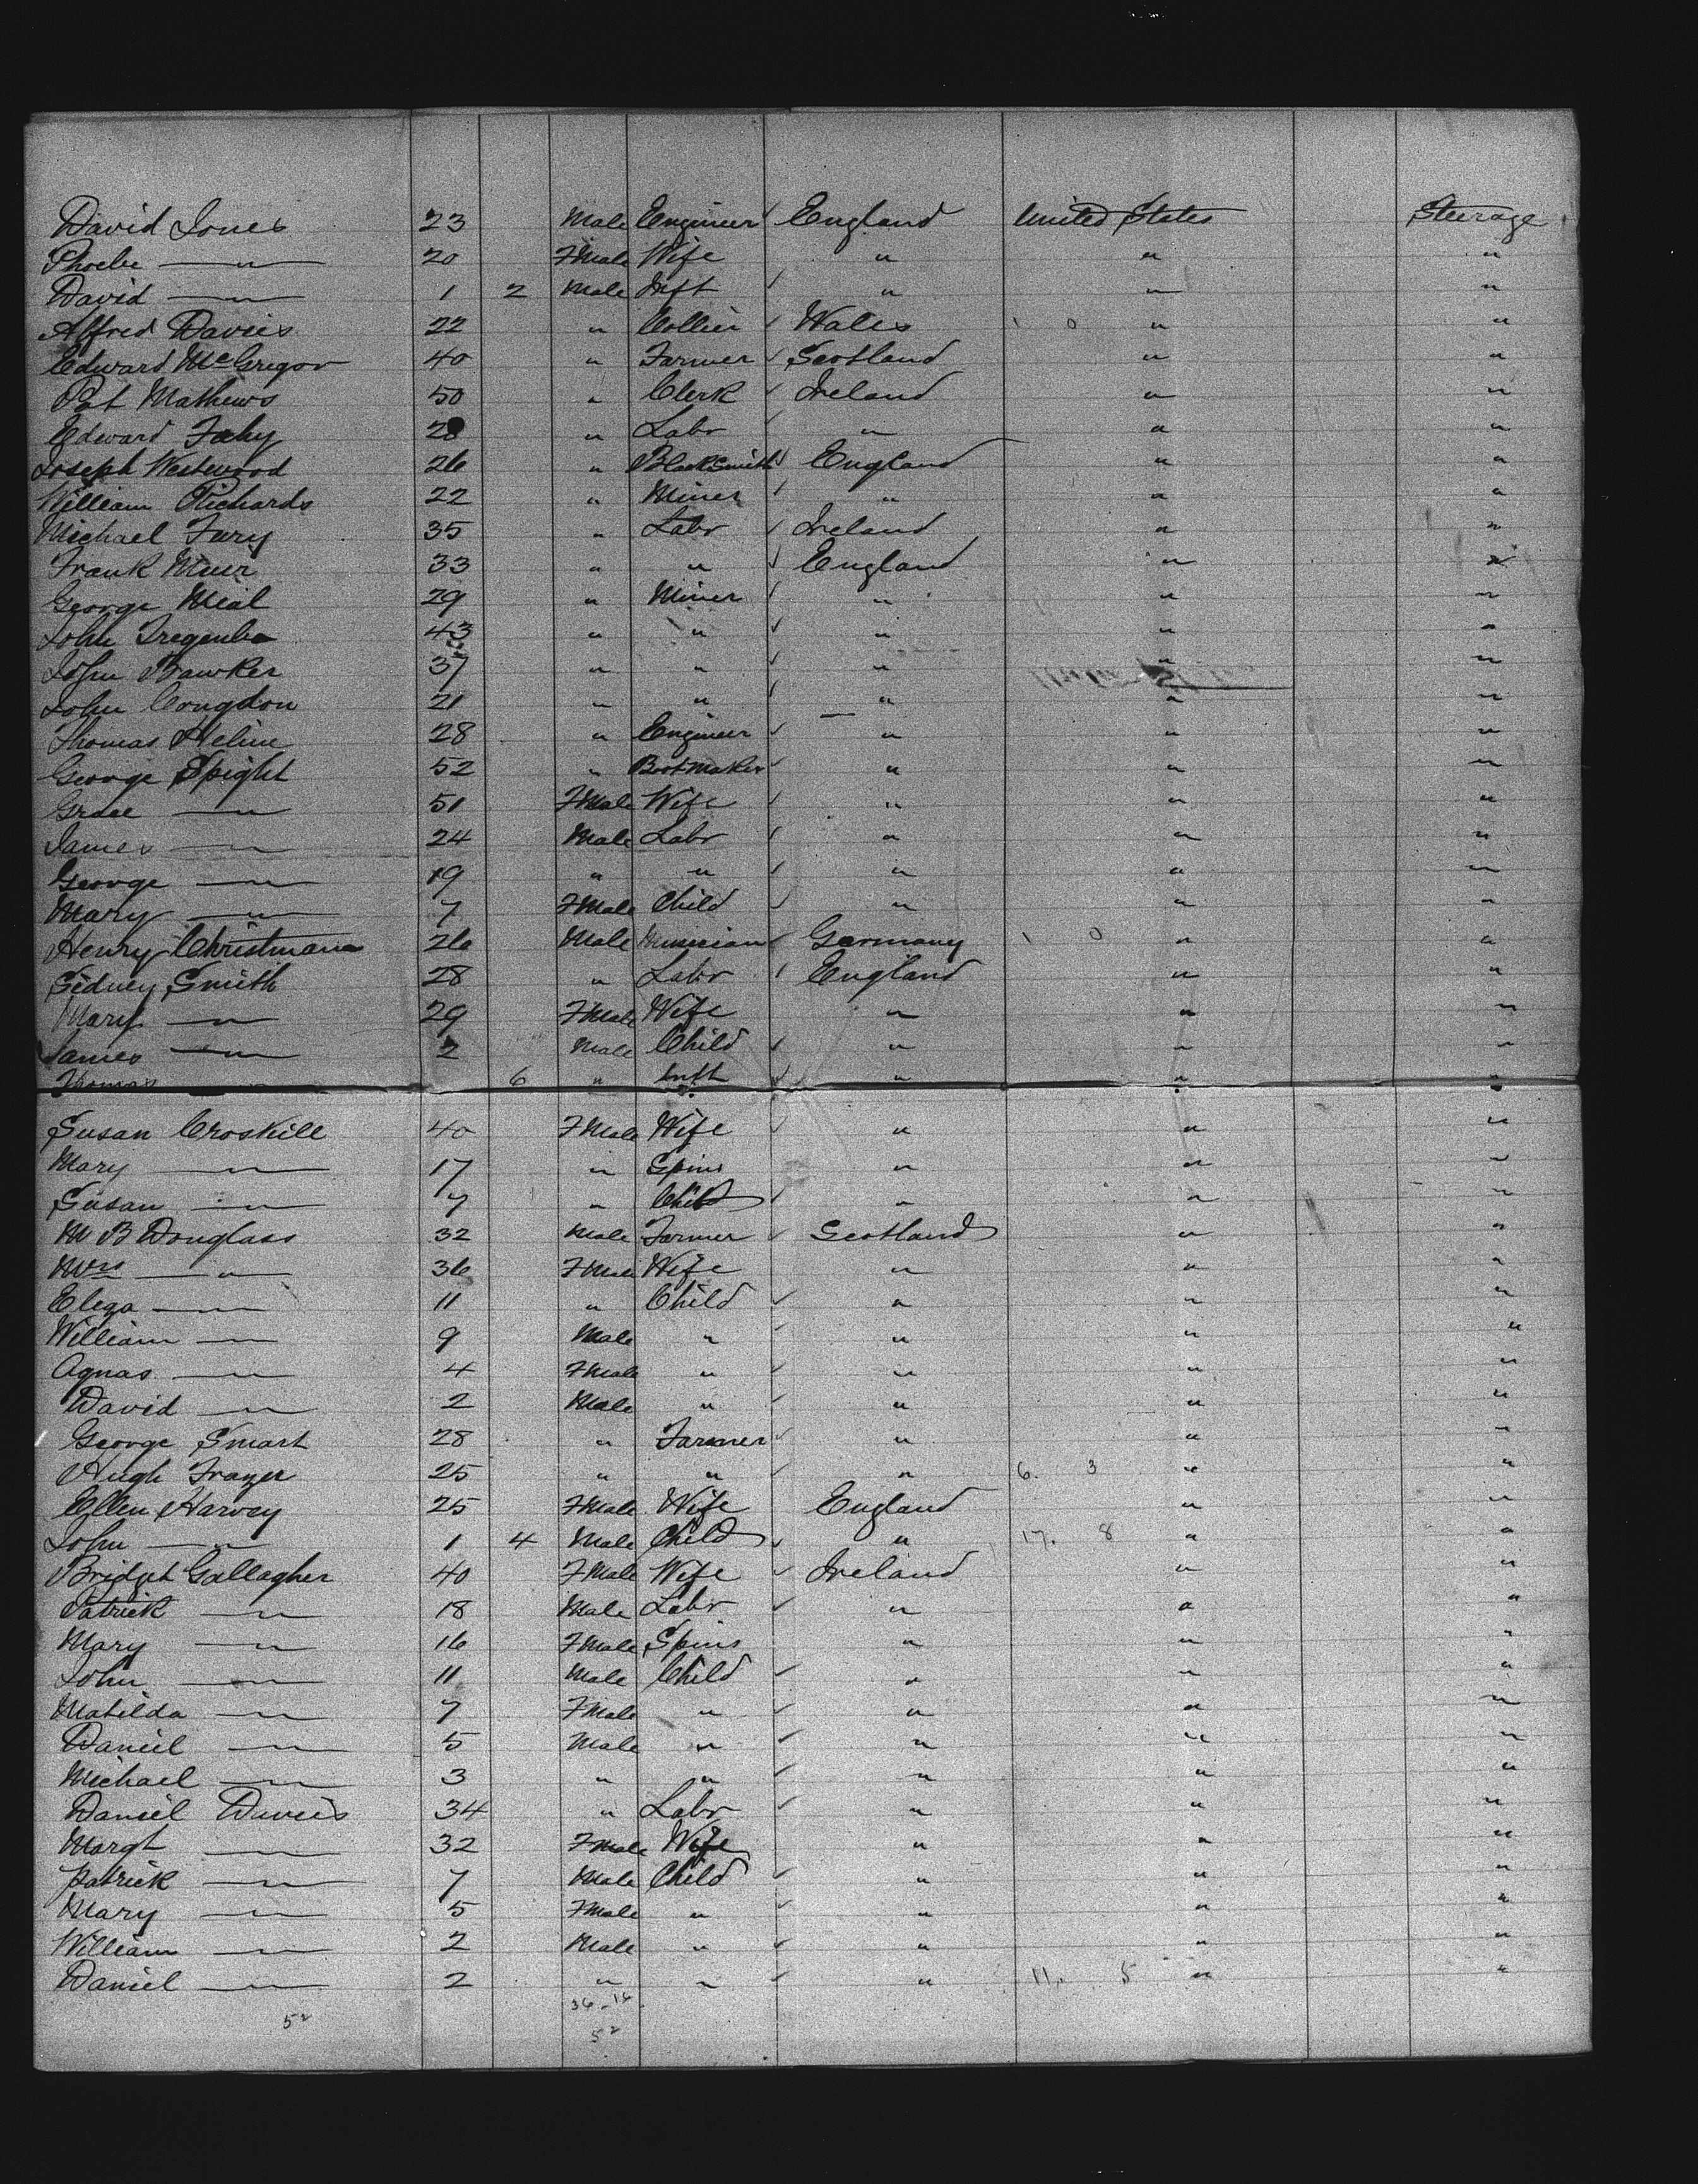 David Jones 23 Male Engineer England United States Steerage
Phoebe — " — 20 FMale Wife " " "
David — " — 1 2 Male Inft " " "
Alfred Davies 22 " Collier Wales 1 0 " "
Edward McGregor 40 " Farmer Scotland " "
Pat Mathews 50 " Clerk Ireland " "
Edward Fahy 28 " Labr " " "
Joseph Westwood 26 " BlackSmith England " "
William Richards 22 " Miner " " "
Michael Fury 35 " Labr Ireland " "
Frank Muir 33 " " England " "
George Meal 29 " Miner " " "
John 43 " " " " "
John Bawker 37 " " " " "
John Congdon 21 " " " " "
Thomas Heline 28 " Engineer " " "
George Spight 52 " Bootmaker " " "
Grace — " — 51 FMale Wife " " "
James — " — 24 Male Labr " " "
George — " — 19 " " " " "
Mary — " — 7 FMale Child " " "
Henry Christmann 26 Male Musician Germany 1 0 " "
Sidney Smith 28 " Labr England " "
Mary — " — 29 FMale Wife " " "
James — " — 2 Male Child " " "
Thomas 6 " Inft " " "
Susan Croskill 40 FMale Wife " " "
Mary — " — 17 " Spins " " "
Susan — " — 7 " Child " " "
M B Douglass 32 Male Farmer Scotland " "
Mrs — " — 36 FMale Wife " " "
Eleza — " — 11 " Child " " "
William — " — 9 Male " " " "
Agnas — " — 4 FMale " " " "
David — " — 2 Male " " " "
George Smart 28 " Farmer " " "
Hugh Frazer 25 " " " 6. 3 " "
Ellen Harvey 25 FMale Wife England " "
John — " — 1 4 Male Child " 17. 8 " "
Bridget Gallagher 40 FMale Wife Ireland " "
Patrick — " — 18 Male Labr " " "
Mary — " — 16 FMale Spins " " "
John — " — 11 Male Child " " "
Matilda — " — 7 FMale " " " "
Daniel — " — 5 Male " " " "
Michael — " — 3 " " " " "
Daniel Davies 34 " Labr " " "
Margt — " — 32 FMale Wife " " "
Patrick — " — 7 Male Child " " "
Mary — " — 5 FMale " " " "
William — " — 2 Male " " " "
Daniel — " — 2 " " " 11. 5 " "
36-16
52 52